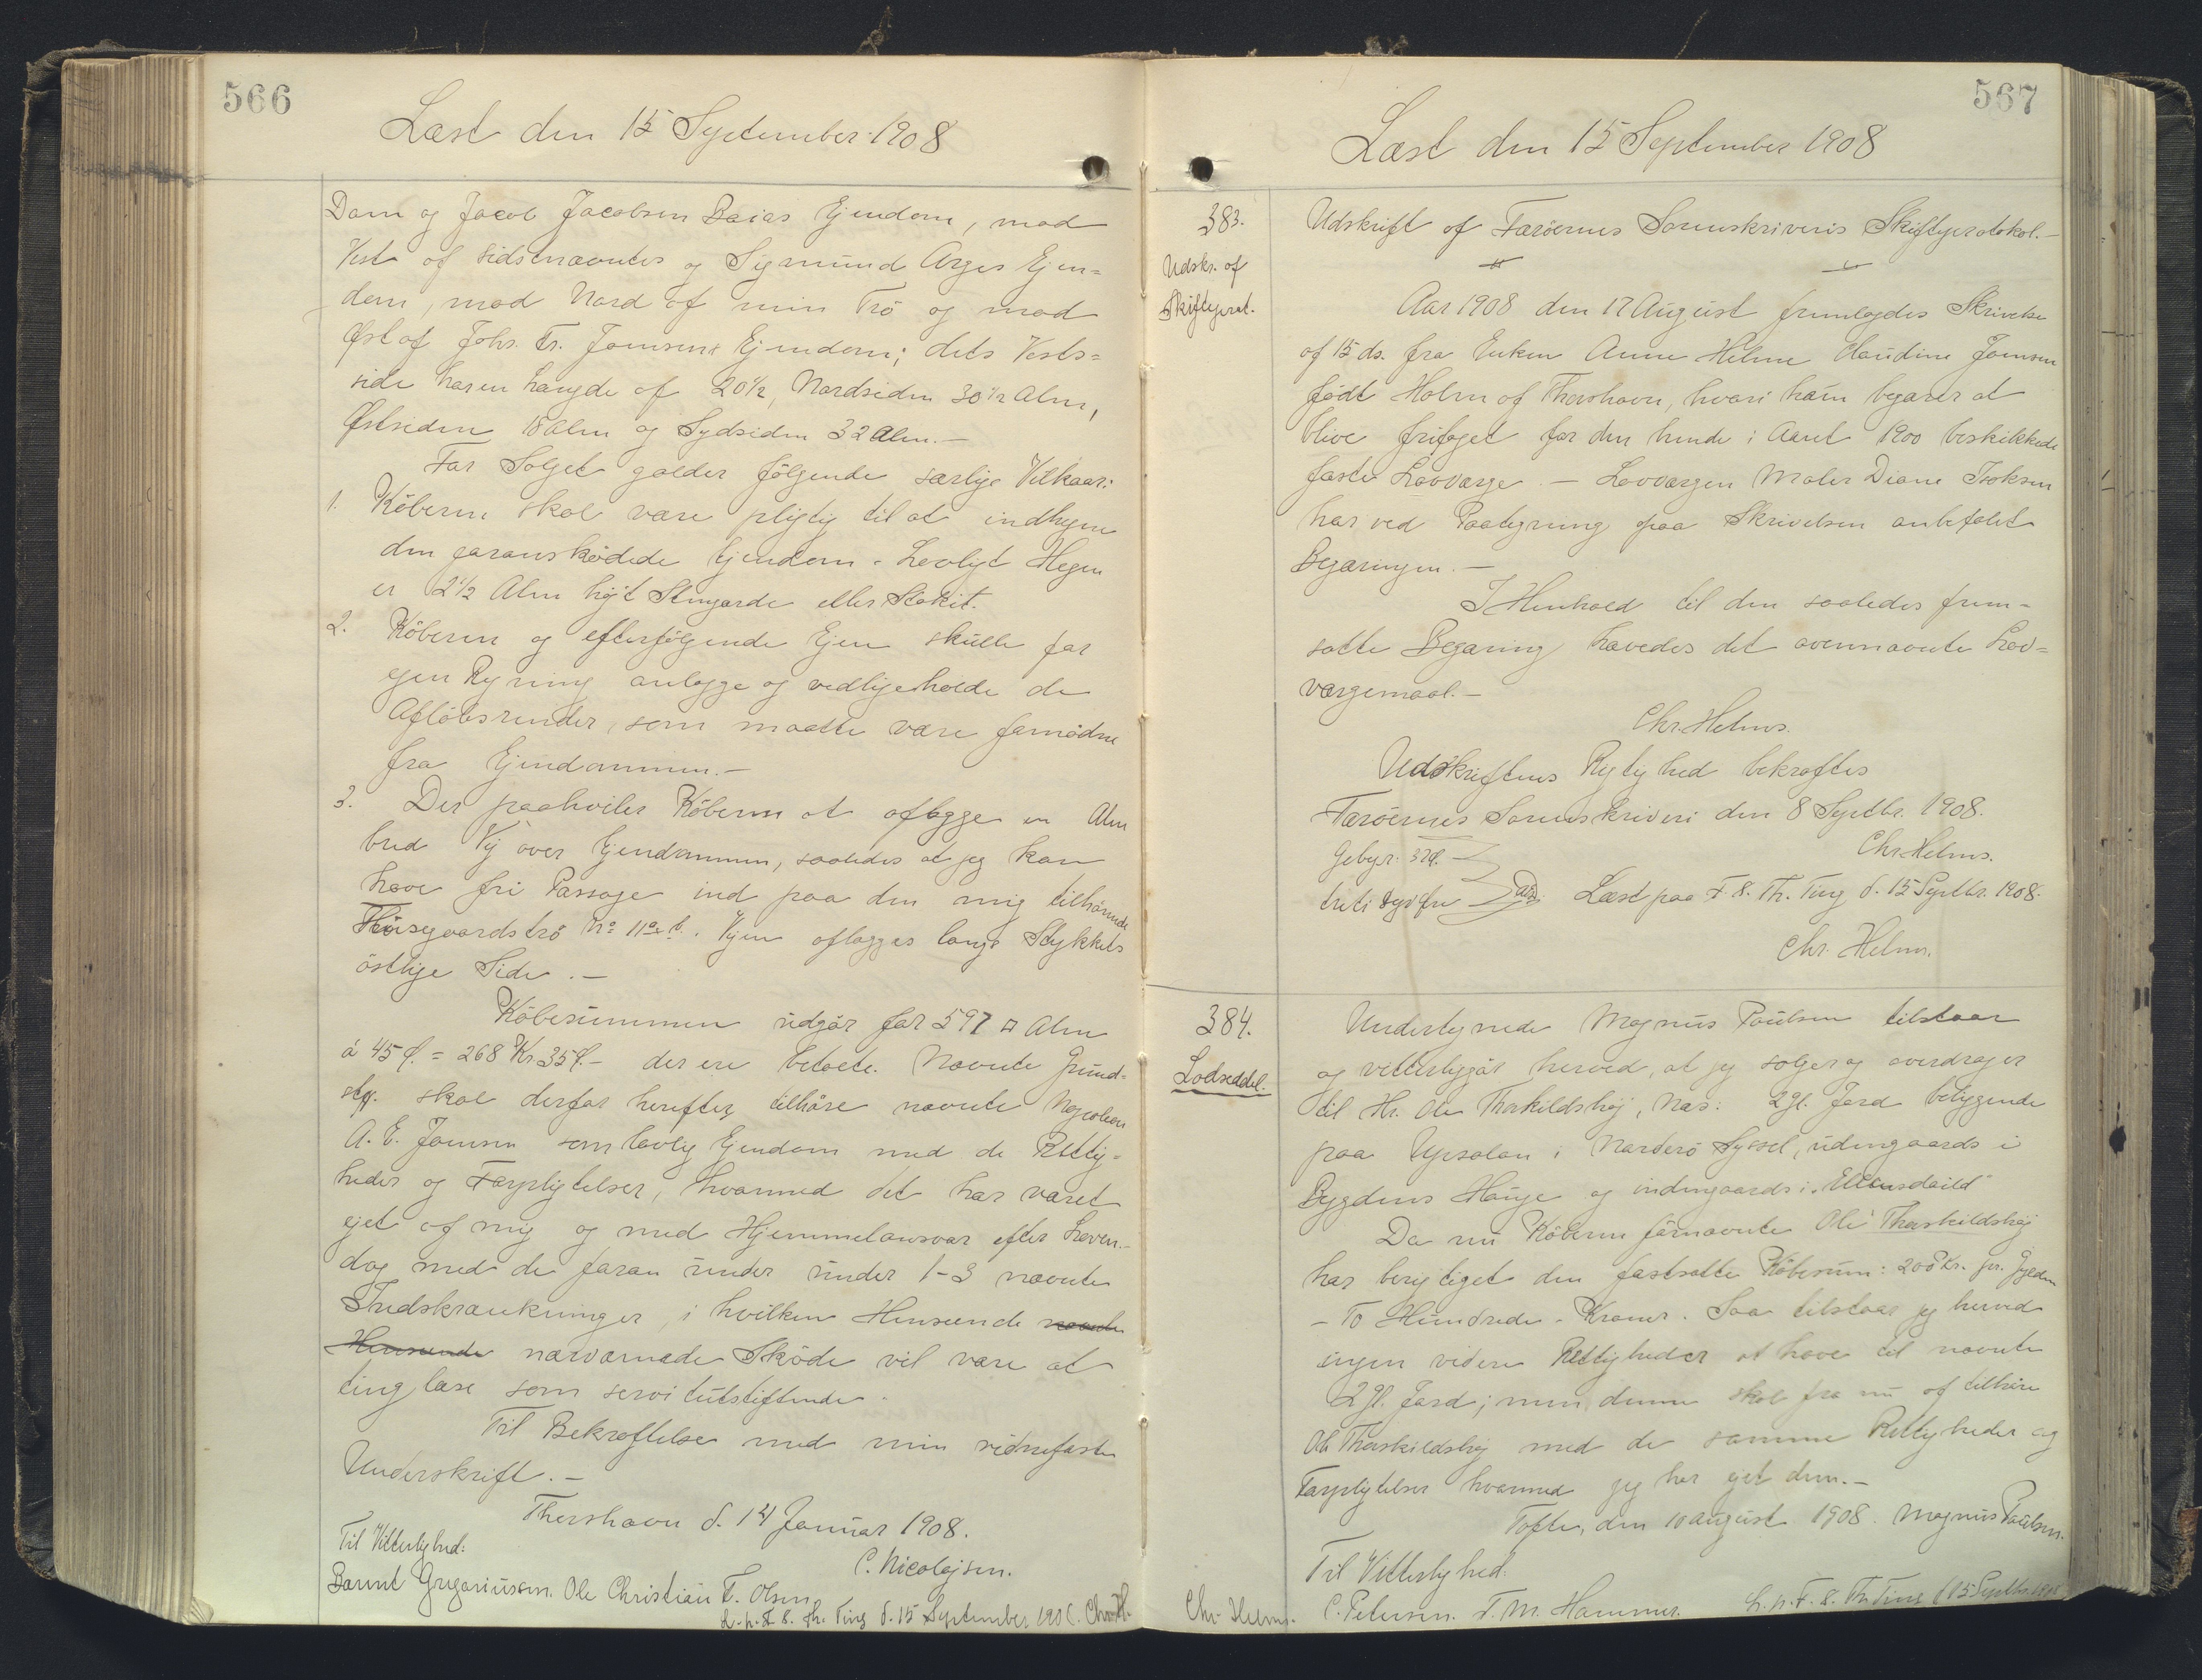 566
Læst den 15 September 1908
Dam og Jacob Jacobsen Daies Ejendom, mod
Vest af sidstnævntes og Sigmund Arges Ejen=
dom, mod Nord af min Trö og mod
Øst af Johs. Fr. Joensens Ejendom; dets Vest=
side har en Længde af 20½, Nordsiden 30½ Alen,
Østsiden 18 Alen og Sydsiden 32 Alen.—
For Salget gælder følgende særlige Vilkaar:
1. Köberen skal være pligtig til at indhegne
den foranskødede Ejendom. Lovligt Hegn
er 2½ Alen højt Stengærde eller Stakit.
2. Köberen og efterfølgende Ejere skulle for
egen Regning anlægge og vedligeholde de
Afløbsrender, som maatte være fornødne
fra Ejendommen.—
3. Det paahviler Köberen at aflægge en Alen
bred Vej over Ejendommen, saaledes at jeg kan
have fri Passage ind paa den mig tilhørende
Húsegaardströ No 11a & b. Vejen aflægges langs Stykkets
östlige Side.—
Købesummen udgør for 597 □ Alen
á 45 Ø. = 268 Kr 35 Ø.— der ere betalte. Nævnte Grund=
stk. skal derfor herefter tilhøre nævnte Napoleon
A. E. Joensen som lovlig Ejendom med de Rettig=
heder og Forpligtelser, hvormed det har været
ejet af mig og med Hjemmelansvar efter Loven.—
dog med de foran under under 1-3 nævnte
Indskrænkninger, i hvilken Henseende nævnte
Henseende nærværende Sköde vil være at
tinglæse som servitutstiftende.
Til Bekræftelse med min vidnefaste
Underskrift.—
Thorshavn d. 14 Januar 1908.
Til Vitterlighed: C. Nicolajsen.
Bernt Gregoriussen. Ole Christian F. Olsen
L. p. F. S. Th. Ting d. 15 September 1908. Chr. H.
567
Læst den 15 September 1908
383. Udskrift af Færøernes Sorenskriveris Skifteprotokol.—
Udskr. af
Skifteprot.
Aar 1908 den 17 August fremlagdes Skrivelse
af 15 ds. fra Enken Anne Helene Claudine Joensen
født Holm af Thorshavn, hvori hun begærer at
blive fritaget for den hende i Aaret 1900 beskikkede
faste Lavværge.— Lavværgen Maler Diane Isaksen
har ved Paategning paa Skrivelsen anbefalet
Begæringen.—
I Henhold til den saaledes frem=
satte Begæring hævedes det ovennævnte Lav=
værgemaal.—
Chr. Helms.
Udskriftens Rigtighed bekræftes
Færøernes Sorenskriveri den 8 Septbr. 1908.
Gebyr: 32 Ø. Chr. Helms.
treti to Øre Læst paa F. S. Th. Ting d. 15 Septbr. 1908.
Chr. Helms.
384. Undertegnede Magnus Poulsen tilstaar
Lodseddel. og vitterliggör herved, at jeg sælger og overdrager
til Hr. Ole Thorkildshøj, Næs: 2 gl. Jord beliggende
paa Upsalan i Norderö Syssel, udengaards i
Bygdens Hauge og indengaards i
Da nu Köberen førnævnte Ole Thorkildshøj
har berigtiget den fastsatte Köbesum: 200 Kr. pr. Gylden
— To Hundrede — Kroner. Saa tilstaar jeg herved
ingen videre Rettigheder at have til nævnte
2 gl. Jord; men denne skal fra nu af tilhøre
Ole Thorkildshøj med de samme Rettigheder og
Forpligtelser hvormed jeg har ejet dem.—
Tofte, den 10 august 1908. Magnus Poulsen.
Til Vitterlighed:
C. Petersen. F. M. Hammer. L. p. F. S. Th. Ting d 15 Septbr. 1908
Chr Helms.